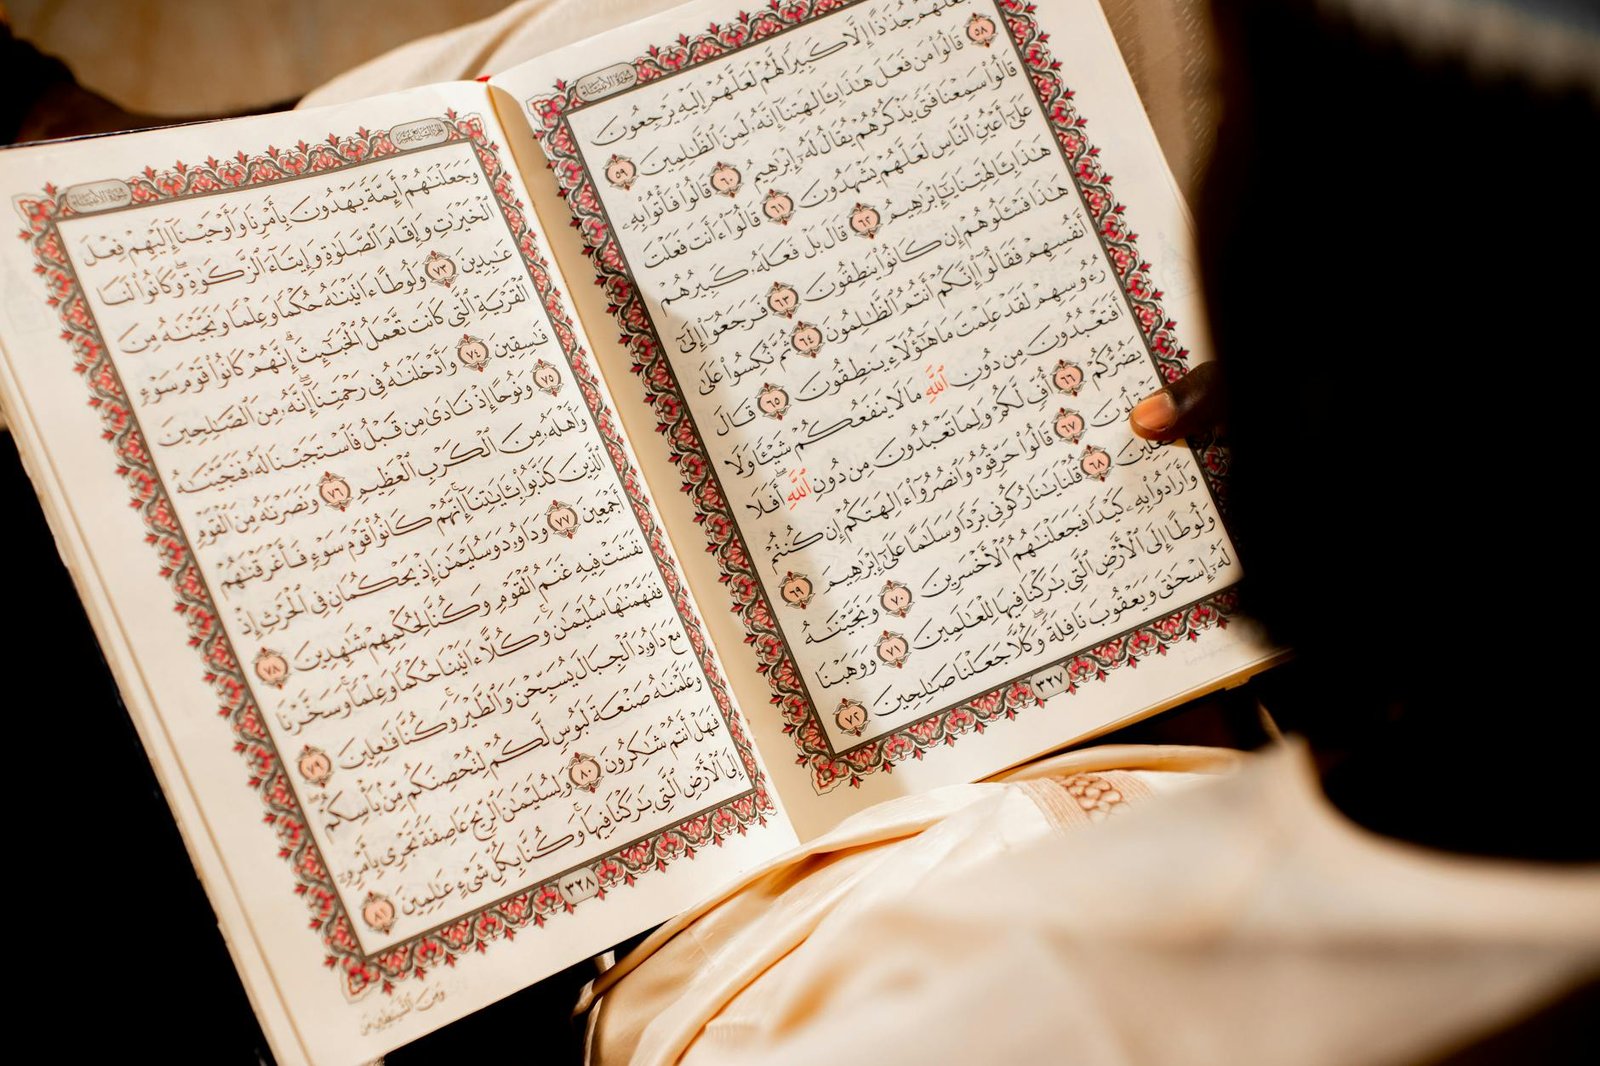 سورة الأنبياء
فَجَعَلَهُمْ جُذَٰذًا إِلَّا كَبِيرًا لَّهُمْ لَعَلَّهُمْ إِلَيْهِ يَرْجِعُونَ
٥٨ قَالُوا۟ مَن فَعَلَ هَٰذَا بِـَٔالِهَتِنَآ إِنَّهُۥ لَمِنَ ٱلظَّٰلِمِينَ ٥٩
قَالُوا۟ سَمِعْنَا فَتًى يَذْكُرُهُمْ يُقَالُ لَهُۥٓ إِبْرَٰهِيمُ ٦٠ قَالُوا۟ فَأْتُوا۟ بِهِۦ
عَلَىٰٓ أَعْيُنِ ٱلنَّاسِ لَعَلَّهُمْ يَشْهَدُونَ ٦١ قَالُوٓا۟ ءَأَنتَ فَعَلْتَ
هَٰذَا بِـَٔالِهَتِنَا يَٰٓإِبْرَٰهِيمُ ٦٢ قَالَ بَلْ فَعَلَهُۥ كَبِيرُهُمْ
هَٰذَا فَسْـَٔلُوهُمْ إِن كَانُوا۟ يَنطِقُونَ ٦٣ فَرَجَعُوٓا۟ إِلَىٰٓ
أَنفُسِهِمْ فَقَالُوٓا۟ إِنَّكُمْ أَنتُمُ ٱلظَّٰلِمُونَ ٦٤ ثُمَّ نُكِسُوا۟ عَلَىٰ
رُءُوسِهِمْ لَقَدْ عَلِمْتَ مَا هَٰٓؤُلَآءِ يَنطِقُونَ ٦٥ قَالَ
أَفَتَعْبُدُونَ مِن دُونِ ٱللَّهِ مَا لَا يَنفَعُكُمْ شَيْـًٔا وَلَا
يَضُرُّكُمْ ٦٦ أُفٍّ لَّكُمْ وَلِمَا تَعْبُدُونَ مِن دُونِ ٱللَّهِ أَفَلَا
٦٧ قَالُوا۟ حَرِّقُوهُ وَٱنصُرُوٓا۟ ءَالِهَتَكُمْ إِن كُنتُمْ
٦٨ قُلْنَا يَٰنَارُ كُونِى بَرْدًا وَسَلَٰمًا عَلَىٰٓ إِبْرَٰهِيمَ ٦٩
وَأَرَادُوا۟ بِهِۦ كَيْدًا فَجَعَلْنَٰهُمُ ٱلْأَخْسَرِينَ ٧٠ وَنَجَّيْنَٰهُ
وَلُوطًا إِلَى ٱلْأَرْضِ ٱلَّتِى بَٰرَكْنَا فِيهَا لِلْعَٰلَمِينَ ٧١ وَوَهَبْنَا
لَهُۥٓ إِسْحَٰقَ وَيَعْقُوبَ نَافِلَةً وَكُلًّا جَعَلْنَا صَٰلِحِينَ ٧٢
٣٢٧
سورة الأنبياء
وَجَعَلْنَٰهُمْ أَئِمَّةً يَهْدُونَ بِأَمْرِنَا وَأَوْحَيْنَآ إِلَيْهِمْ فِعْلَ
ٱلْخَيْرَٰتِ وَإِقَامَ ٱلصَّلَوٰةِ وَإِيتَآءَ ٱلزَّكَوٰةِ وَكَانُوا۟ لَنَا
عَٰبِدِينَ ٧٣ وَلُوطًا ءَاتَيْنَٰهُ حُكْمًا وَعِلْمًا وَنَجَّيْنَٰهُ مِنَ
ٱلْقَرْيَةِ ٱلَّتِى كَانَت تَّعْمَلُ ٱلْخَبَٰٓئِثَ إِنَّهُمْ كَانُوا۟ قَوْمَ سَوْءٍ
فَٰسِقِينَ ٧٤ وَأَدْخَلْنَٰهُ فِى رَحْمَتِنَآ إِنَّهُۥ مِنَ ٱلصَّٰلِحِينَ
٧٥ وَنُوحًا إِذْ نَادَىٰ مِن قَبْلُ فَٱسْتَجَبْنَا لَهُۥ فَنَجَّيْنَٰهُ
وَأَهْلَهُۥ مِنَ ٱلْكَرْبِ ٱلْعَظِيمِ ٧٦ وَنَصَرْنَٰهُ مِنَ ٱلْقَوْمِ
ٱلَّذِينَ كَذَّبُوا۟ بِـَٔايَٰتِنَآ إِنَّهُمْ كَانُوا۟ قَوْمَ سَوْءٍ فَأَغْرَقْنَٰهُمْ
أَجْمَعِينَ ٧٧ وَدَاوُۥدَ وَسُلَيْمَٰنَ إِذْ يَحْكُمَانِ فِى ٱلْحَرْثِ إِذْ
نَفَشَتْ فِيهِ غَنَمُ ٱلْقَوْمِ وَكُنَّا لِحُكْمِهِمْ شَٰهِدِينَ ٧٨
فَفَهَّمْنَٰهَا سُلَيْمَٰنَ وَكُلًّا ءَاتَيْنَا حُكْمًا وَعِلْمًا وَسَخَّرْنَا
مَعَ دَاوُۥدَ ٱلْجِبَالَ يُسَبِّحْنَ وَٱلطَّيْرَ وَكُنَّا فَٰعِلِينَ ٧٩
وَعَلَّمْنَٰهُ صَنْعَةَ لَبُوسٍ لَّكُمْ لِتُحْصِنَكُم مِّنۢ بَأْسِكُمْ
فَهَلْ أَنتُمْ شَٰكِرُونَ ٨٠ وَلِسُلَيْمَٰنَ ٱلرِّيحَ عَاصِفَةً تَجْرِى بِأَمْرِهِۦٓ
إِلَى ٱلْأَرْضِ ٱلَّتِى بَٰرَكْنَا فِيهَا وَكُنَّا بِكُلِّ شَىْءٍ عَٰلِمِينَ ٨١
٣٢٨
وَمِنَ ٱلشَّيَٰطِينِ مَن